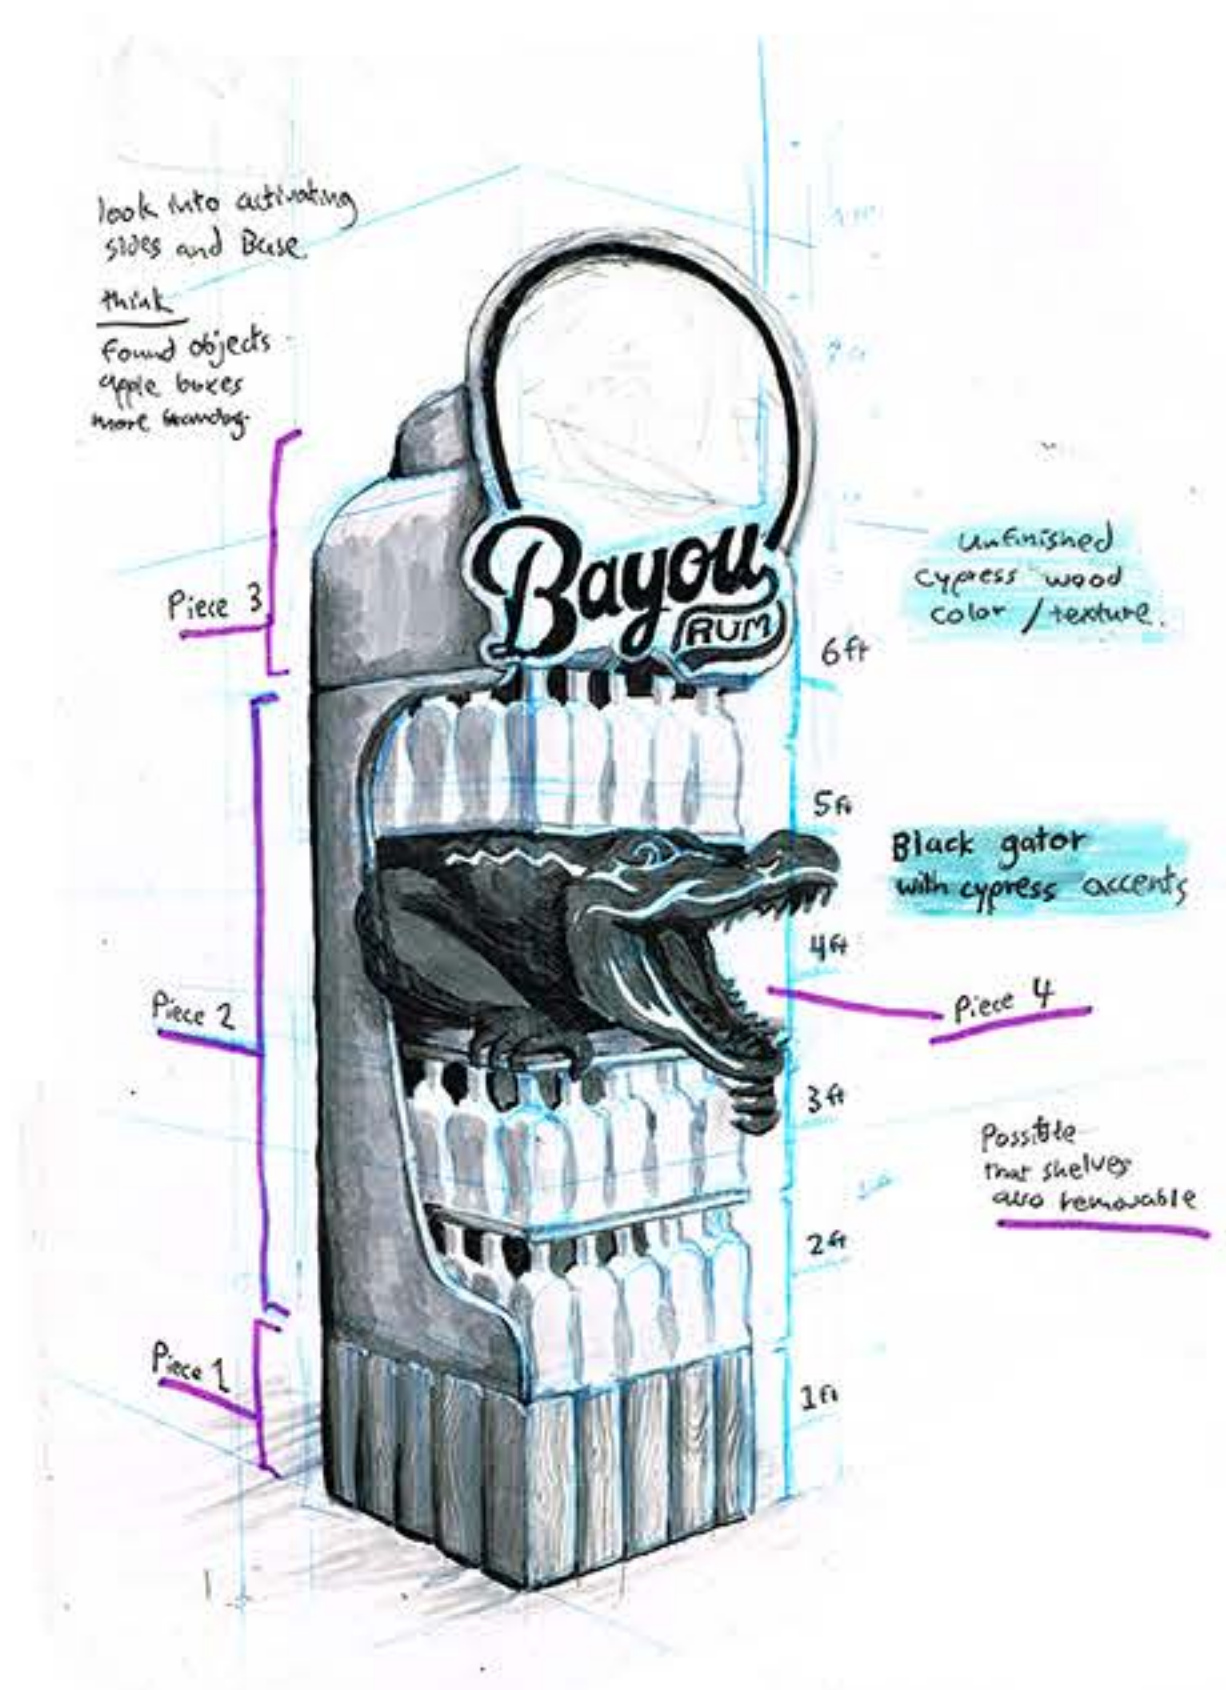 look into activating
sides and Base.
think
found objects
apple boxes
more branding.
Piece 3
Bayou
RUM
Unfinished
cypress wood
color / texture.
6ft
5ft
Black gator
with cypress accents
4ft
Piece 2
Piece 4
3ft
Possible
that shelves
also removable
2ft
Piece 1
1ft